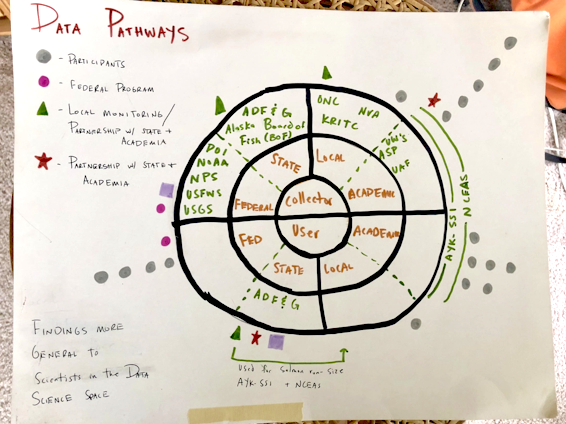 DATA PATHWAYS
- PARTICIPANTS
- FEDERAL PROGRAM
- LOCAL MONITORING/
PARTNERSHIP W/ STATE +
ACADEMIA
- PARTNERSHIP W/ STATE +
ACADEMIA
ADF & G
Alaska Board of
Fish (BOF)
ONC
NVA
KRITC
DOI
NOAA
NPS
USFWS
USGS
ASP
UAF
STATE
LOCAL
FEDERAL
Collector
ACADEMIC
User
FED
ACADEMIC
STATE
LOCAL
ADF & G
AYK-SSI
NCEAS
Used for Salmon run-size
AYK-SSI + NCEAS
FINDINGS MORE
GENERAL TO
Scientists in the DATA
SCIENCE SPACE